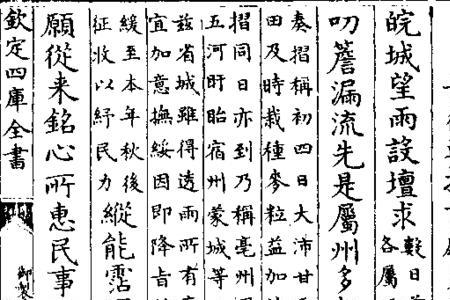 皖城望雨設壇求
數日
各屬
叨簷漏流先是屬州多
奏摺稱初四日大沛甘
田及時栽種麥粒益加
摺同日亦到乃稱亳州
五河盱眙宿州蒙城等
兹省城雖得透雨所有
宜加意撫綏因即降㫖
緩至本年秋後
征收以紓民力
縱能霑
願從来銘心所惠民事
欽定四庫全書
御製